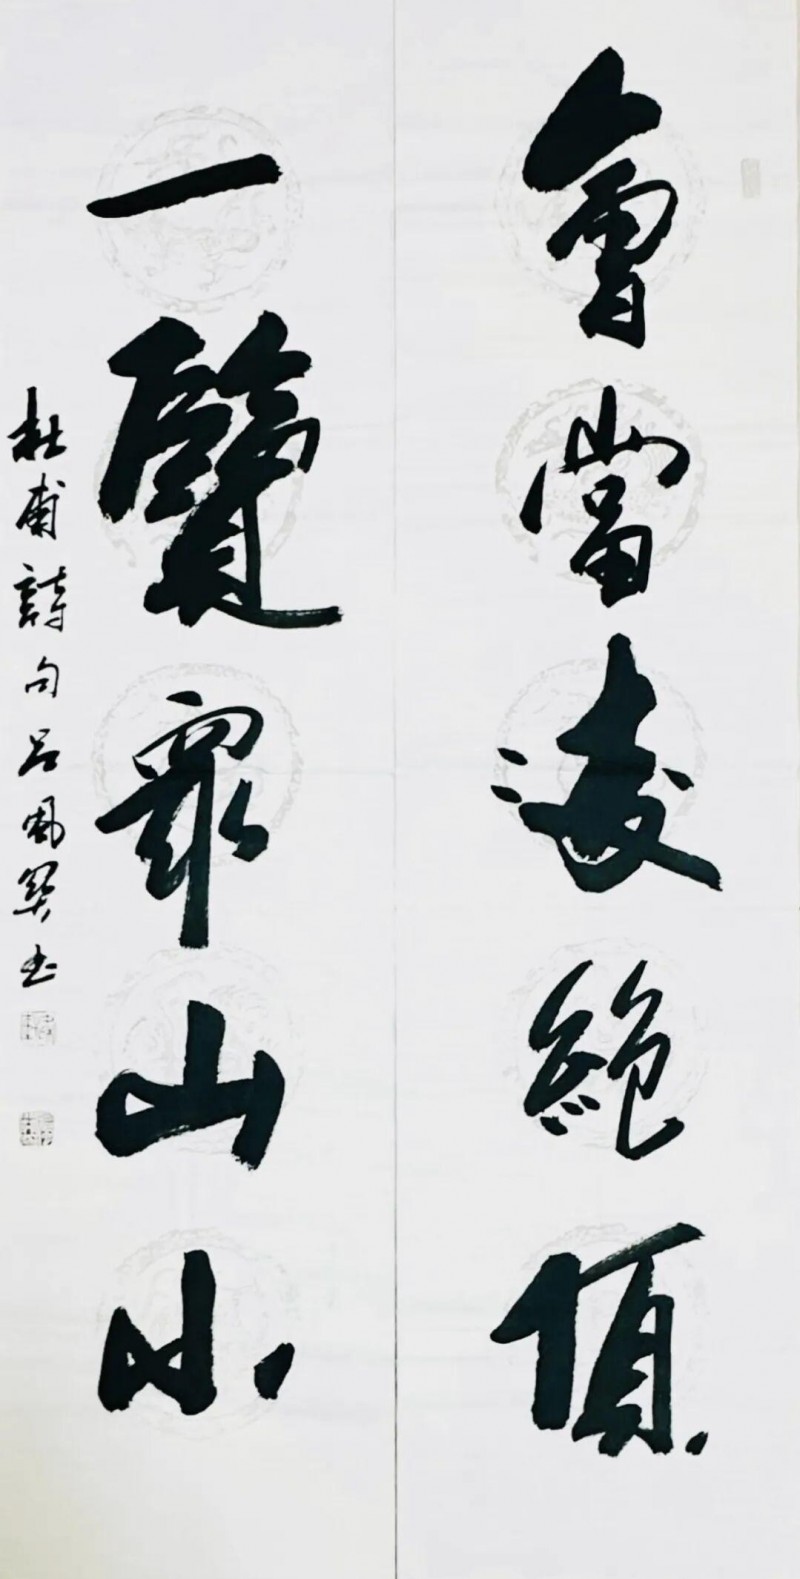 會當凌絕頂
一覽眾山小
杜甫詩句呂風關書